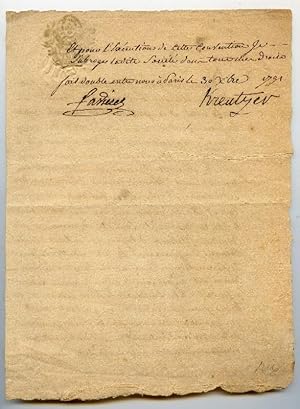 Et pour l'Execution de cette Convention Je
Subroge ladite Société dans tous mes droits
fait double entre nous à Paris le 3 Xbre 1791
Kreutzer